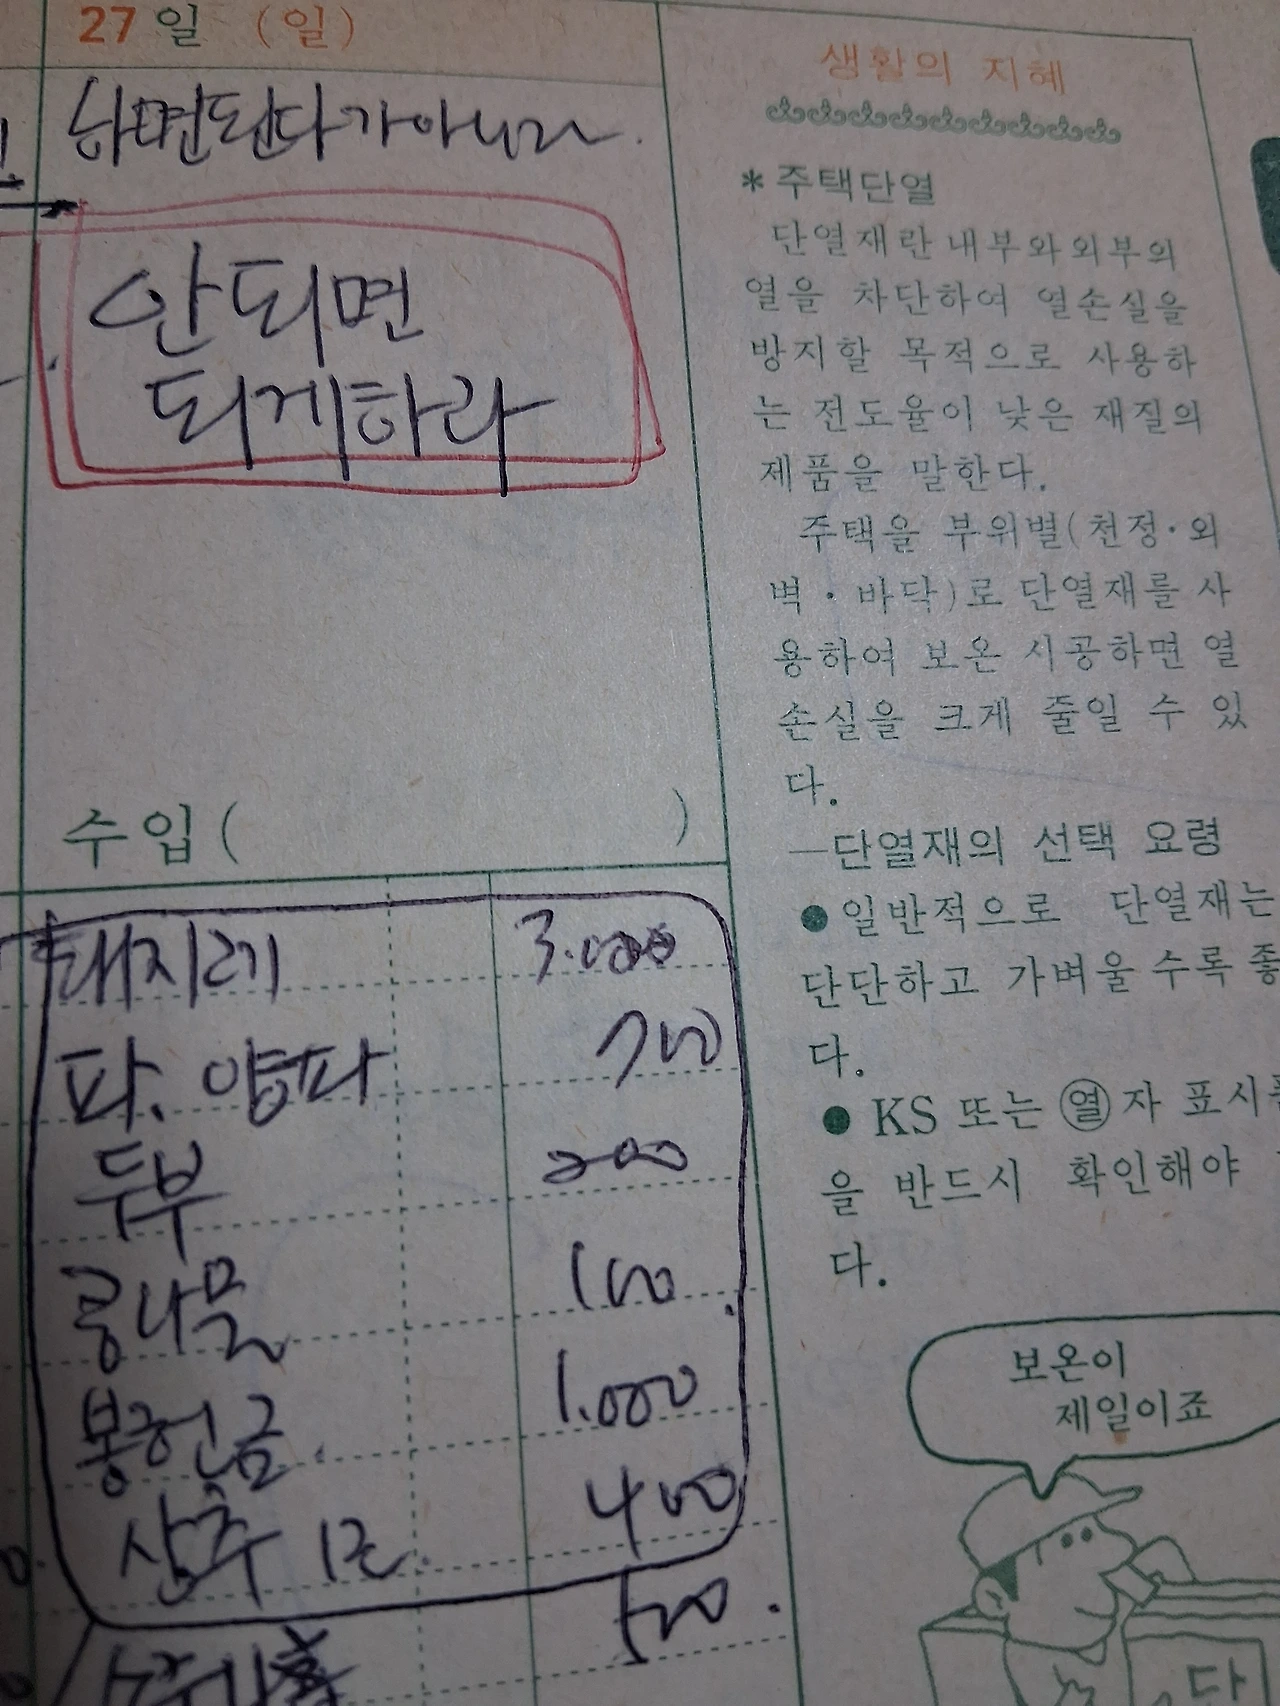 27일 (일)
하면된다가아니라.
안되면
되게하라
수입( )
돼지고기 3.000
파. 양파 700
두부 200
콩나물 100
봉헌금. 1.000
상추 1근. 400
500.
생활의 지혜
*주택단열
단열재란 내부와 외부의
열을 차단하여 열손실을
방지할 목적으로 사용하
는 전도율이 낮은 재질의
제품을 말한다.
주택을 부위별(천정·외
벽·바닥)로 단열재를 사
용하여 보온 시공하면 열
손실을 크게 줄일 수 있
다.
—단열재의 선택 요령
●일반적으로 단열재는
단단하고 가벼울수록 좋
다.
● KS 또는 ㊞자 표시를
을 반드시 확인해야
다.
보온이
제일이죠
단